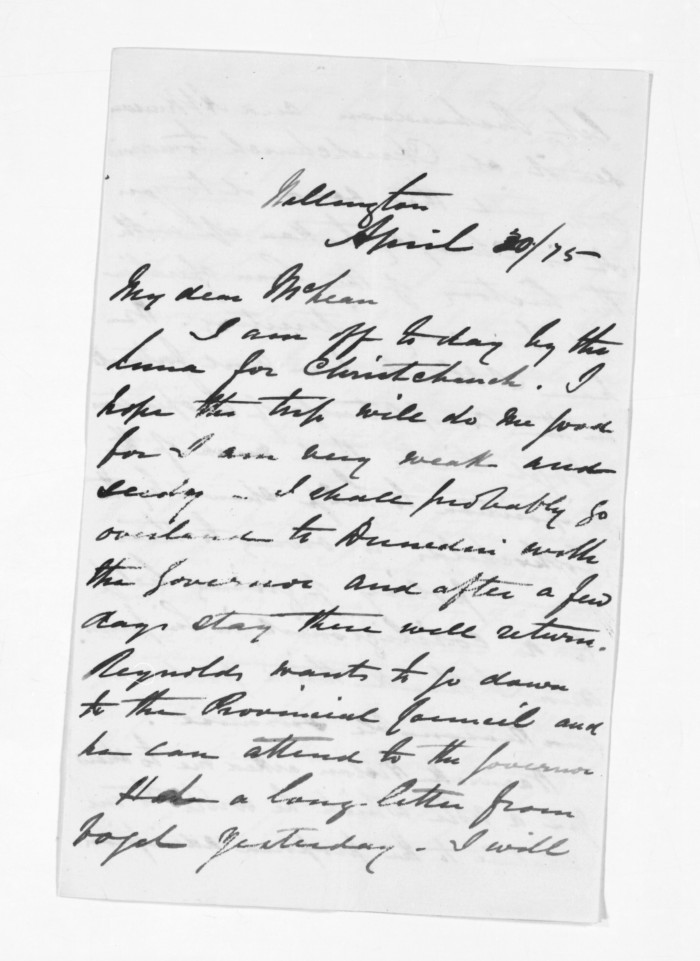 Wellington
April 30/75
My dear McLean
I am off to day by the
Luna for Christchurch. I
hope the trip will do me good
for I am very weak and
seedy - I shall probably go
overland to Dunedin with
the Governor and after a few
days stay there will return.
Reynolds wants to go down
to the Provincial Council and
he can attend to the Governor
Had a long letter from
Vogel yesterday - I will